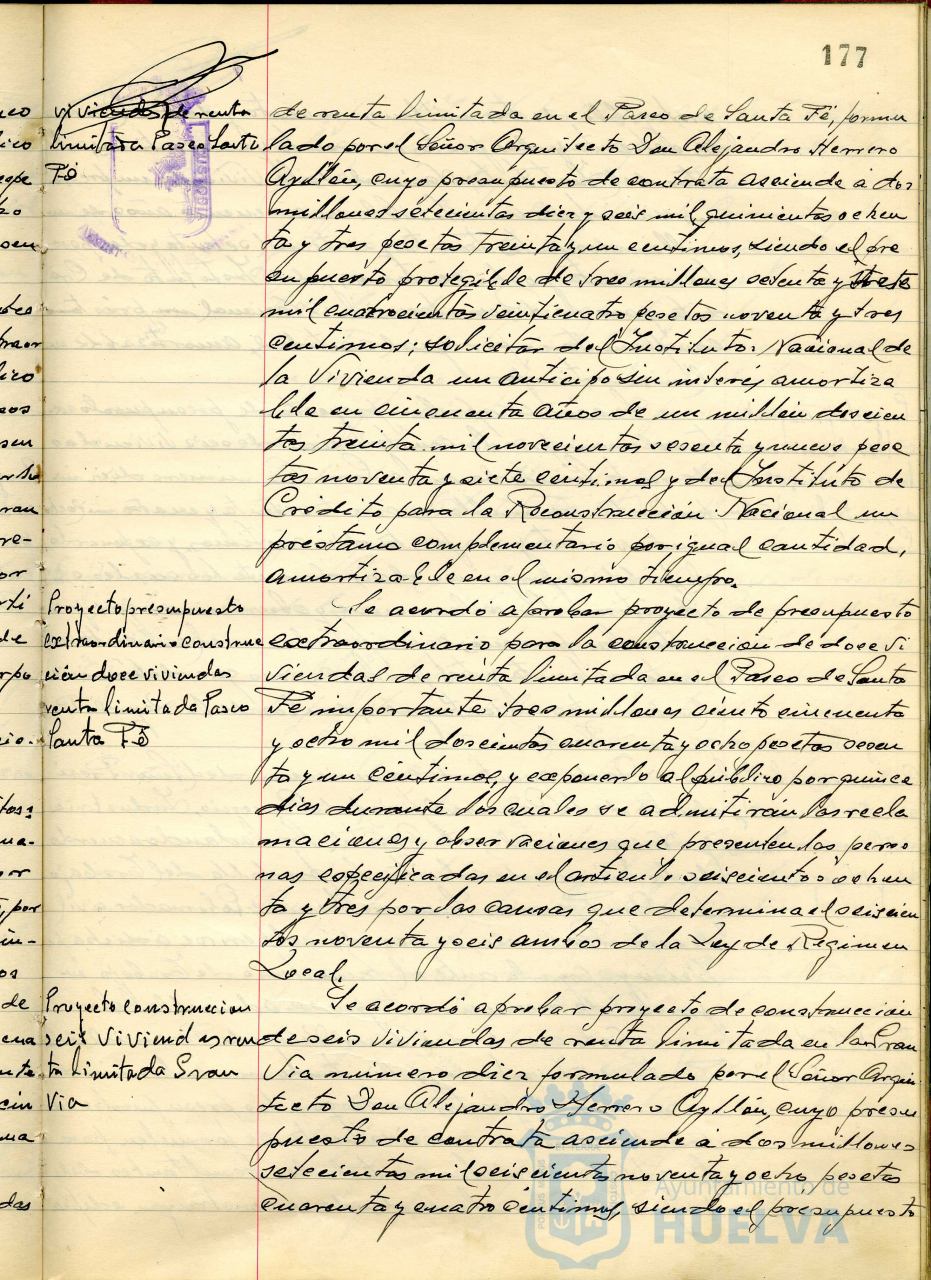 177
viviendas de renta
limitada Paseo Santa
Fé
de renta limitada en el Paseo de Santa Fé, formu
lado por el Señor Arquitecto Don Alejandro Herrero
Ayllón, cuyo presupuesto de contrata asciende á dos
millones setecientas diez y seis mil quinientas ochen
ta y tres pesetas treinta y un centimos, siendo el pre
supuesto protegible de tres millones setenta y siete
mil cuatrocientas veinticuatro pesetas noventa y tres
centimos; solicitar del Instituto Nacional de
la Vivienda un anticipo sin interés amortiza
ble en cincuenta años de un millón doscien
tas treinta mil novecientas sesenta y nueve pese
tas noventa y siete centimos y del Instituto de
Crédito para la Reconstrucción Nacional un
préstamo complementario por igual cantidad,
amortizable en el mismo tiempo.
Proyecto presupuesto
extraordinario construc
ción doce viviendas
renta limitada Paseo
Santa Fé
Se acordó aprobar proyecto de presupuesto
extraordinario para la construcción de doce vi
viendas de renta limitada en el Paseo de Santa
Fé importante tres millones ciento cincuenta
y ocho mil doscientas cuarenta y ocho pesetas sesen
ta y un céntimos, y exponerlo al público por quince
dias durante los cuales se admitirán las recla
maciones y observaciones que presenten las perso
nas especificadas en el articulo seiscientos ochen
ta y tres por las causas que determina el seiscien
tos noventa y seis ambos de la Ley de Régimen
Local.
Proyecto construccion
seis viviendas ren
ta limitada Gran
Via
Se acordó aprobar proyecto de construcción
de seis viviendas de renta limitada en la Gran
Via número diez formulado por el Señor Arqui
tecto Don Alejandro Herrero Ayllón, cuyo presu
puesto de contrata asciende á dos millones
setecientas mil seiscientas noventa y ocho pesetas
cuarenta y cuatro céntimos, siendo el presupuesto
Ayuntamiento de
HUELVA